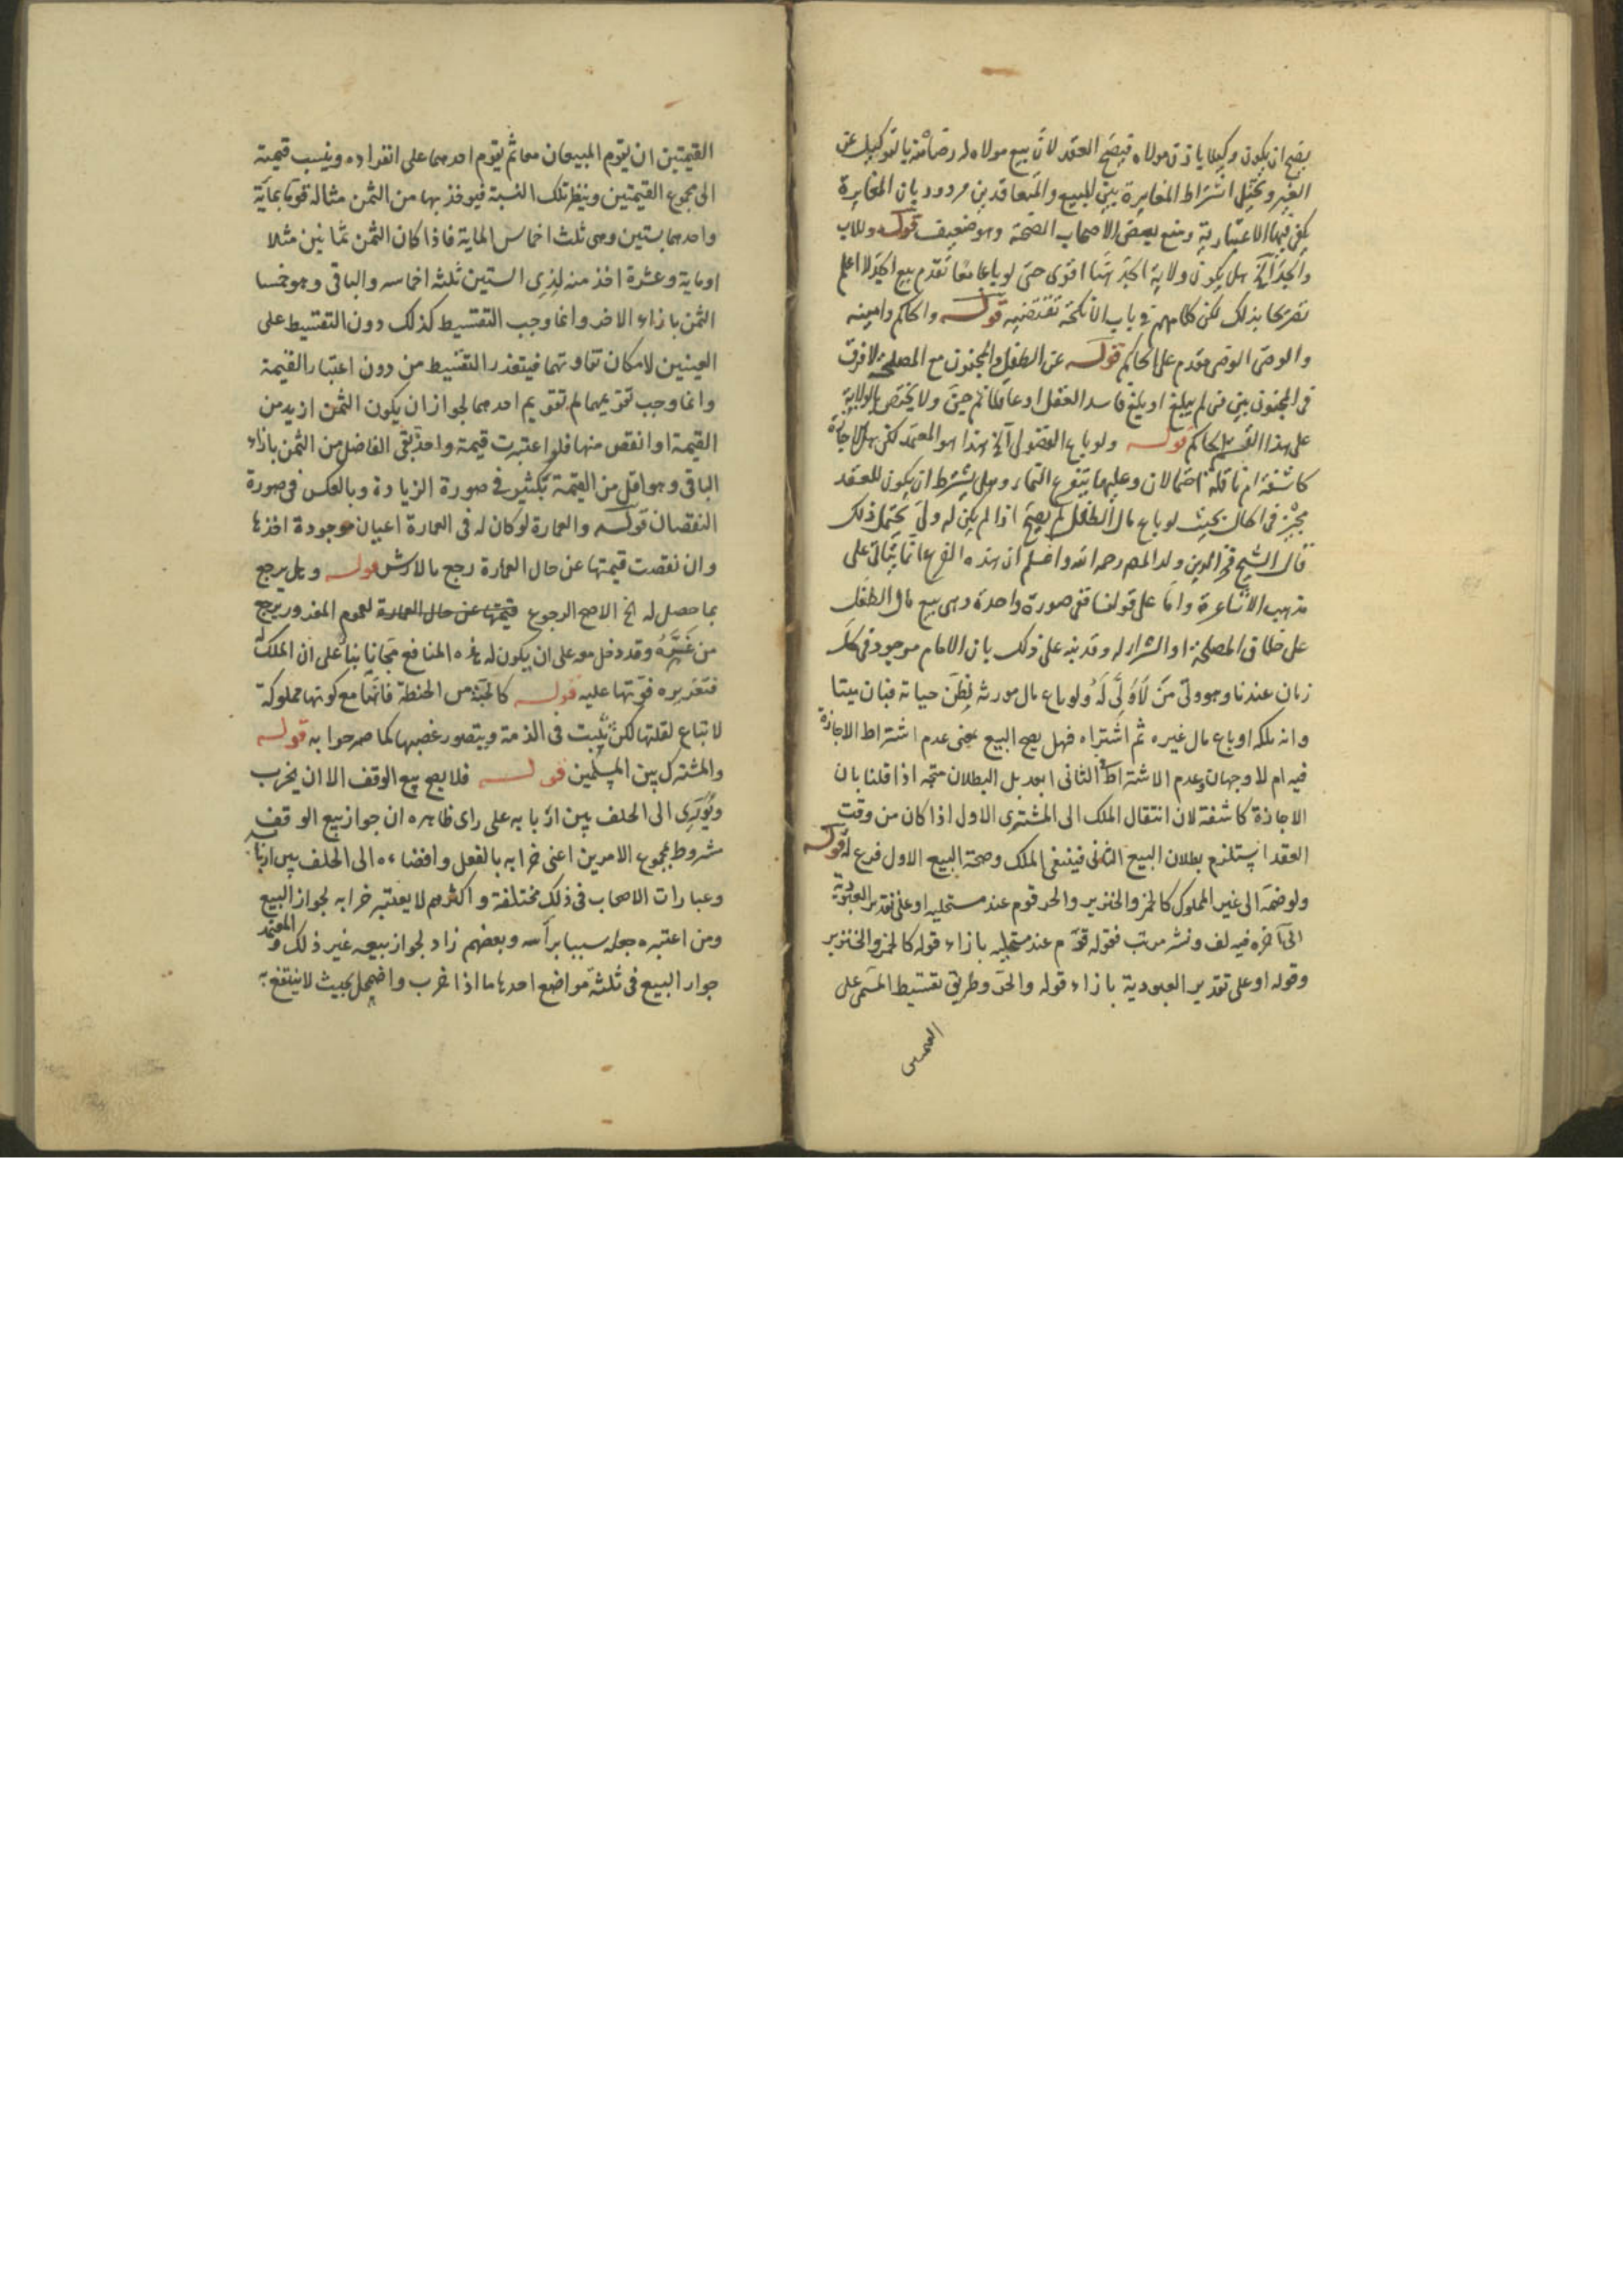 يصح ان يكون وكيلا باذن مولاه فيصح العقد لان بيع مولاه له رضا منه بالتوكيل عن
الغير ويحتمل اشتراط المغايرة بين المبيع والمتعاقدين مردود بان المغايرة
يكفى فيها الاعتبارية ومنع بعض الاصحاب الصحة وهو ضعيف قوله وللاب
والجد الخ هل يكون ولاية الجد هنا اقوى حتى لو باعا معا تقدم بيع الجد لا اعلم
تصريحا بذلك لكن كلامهم فى باب الانكحة تقتضيه قوله والحاكم وامينه
والوصى الوصى مقدم على الحاكم قوله عن الطفل والمجنون مع المصلحة لا فرق
فى المجنون بين من لم يبلغ او بلغ فاسد العقل او عاقلا ثم جن ولا يختص بالولاية
على هذا القسم الحاكم قوله ولو باع الفضولى الخ هذا هو المعتمد لكن هل الاجازة
كاشفة ام ناقلة احتمالان وعليهما يتفرع النماء وهل يشترط ان يكون للعقد
مجيز فى الحال بحيث لو باع مال الطفل لم يصح اذا لم يكن له ولى يحتمل ذلك
قال الشيخ فخر الدين ولد المصر رحمه الله واعلم ان هذه الفرع انما يتاتى على
مذهب الاشاعرة واما على قولنا ففى صورة واحدة وهى بيع مال الطفل
على خلاف المصلحة او الشراء له وقد نبه على ذلك بان الامام موجود فى كل
زمان عندنا وهو ولى من لا ولى له ولو باع مال مورثه لظن حياته فبان ميتا
وانه ملكه او باع مال غيره ثم اشتراه فهل يصح البيع بمعنى عدم اشتراط الاجازة
فيه ام لا وجهان وعدم الاشتراط فى الثانى ابعد بل البطلان متجه اذا قلنا بان
الاجازة كاشفة لان انتقال الملك الى المشترى الاول اذا كان من وقت
العقد استلزم بطلان البيع الثانى فينتفى الملك وصحة البيع الاول فرع له قوله
ولو ضمه الى غير المملوك كالخمر والخنزير والحر قوم عند مستحليه او على تقدير العبودية
الى آخره فيه لف ونشر مرتب فقوله قوم عند مستحليه بازاء قوله كالخمر والخنزير
وقوله او على تقدير العبودية بازاء قوله والحر وطريق تقسيط المسمى على
القيمتين ان يقوم المبيعان معا ثم يقوم احدهما على انفراده وينسب قيمته
الى مجموع القيمتين وينظر تلك النسبة فيوخذ بها من الثمن مثاله قوما بماية
واحدهما بستين وهى ثلث اخماس الماية فاذا كان الثمن ثمانين مثلا
او ماية وعشرة اخذ منه لذى الستين ثلثه اخماسه والباقى وهو خمسا
الثمن بازاء الاخر وانما وجب التقسيط كذلك دون التقسيط على
العينين لامكان تفاوتهما فيتعذر التقسيط من دون اعتبار القيمة
وانما وجب تقويمهما لم تقويم احدهما لجواز ان يكون الثمن ازيد من
القيمة او انقص منها فلو اعتبرت قيمة واحد بقى الفاضل من الثمن بازاء
الباقى وهو اقل من القيمة بكثير فى صورة الزيادة وبالعكس فى صورة
النقصان قوله والعمارة لو كان له فى العمارة اعيان موجودة اخذها
وان نقصت قيمتها عن حال العمارة رجع بالارش قوله وهل يرجع
بما حصل له الخ الاصح الرجوع قيمتها عن حال العمارة لعموم المغرور يرجع
من غره وقد دخل معه على ان يكون له هذه المنافع مجانا بناء على ان الملك له
فتغريره فوتها عليه قوله كالحبة من الحنطة فانها مع كونها مملوكة
لا تباع لقلتها لكن يثبت فى الذمة ويتصور غصبها كما صرحوا به قوله
والمشترك بين المسلمين قوله فلا يصح بيع الوقف الا ان يخرب
ويؤدى الى الخلف بين اربابه على راى ظاهره ان جواز بيع الوقف
مشروط بمجموع الامرين اعنى خرابه بالفعل وافضاءه الى الخلف بين اربابه
وعبارات الاصحاب فى ذلك مختلفة واكثرهم لا يعتبر خرابه لجواز البيع
ومن اعتبره جعله سببا برأسه وبعضهم زاد لجواز بيعه غير ذلك والمعتمد
جواز البيع فى ثلثة مواضع احدها ما اذا خرب واضمحل بحيث لا ينتفع به